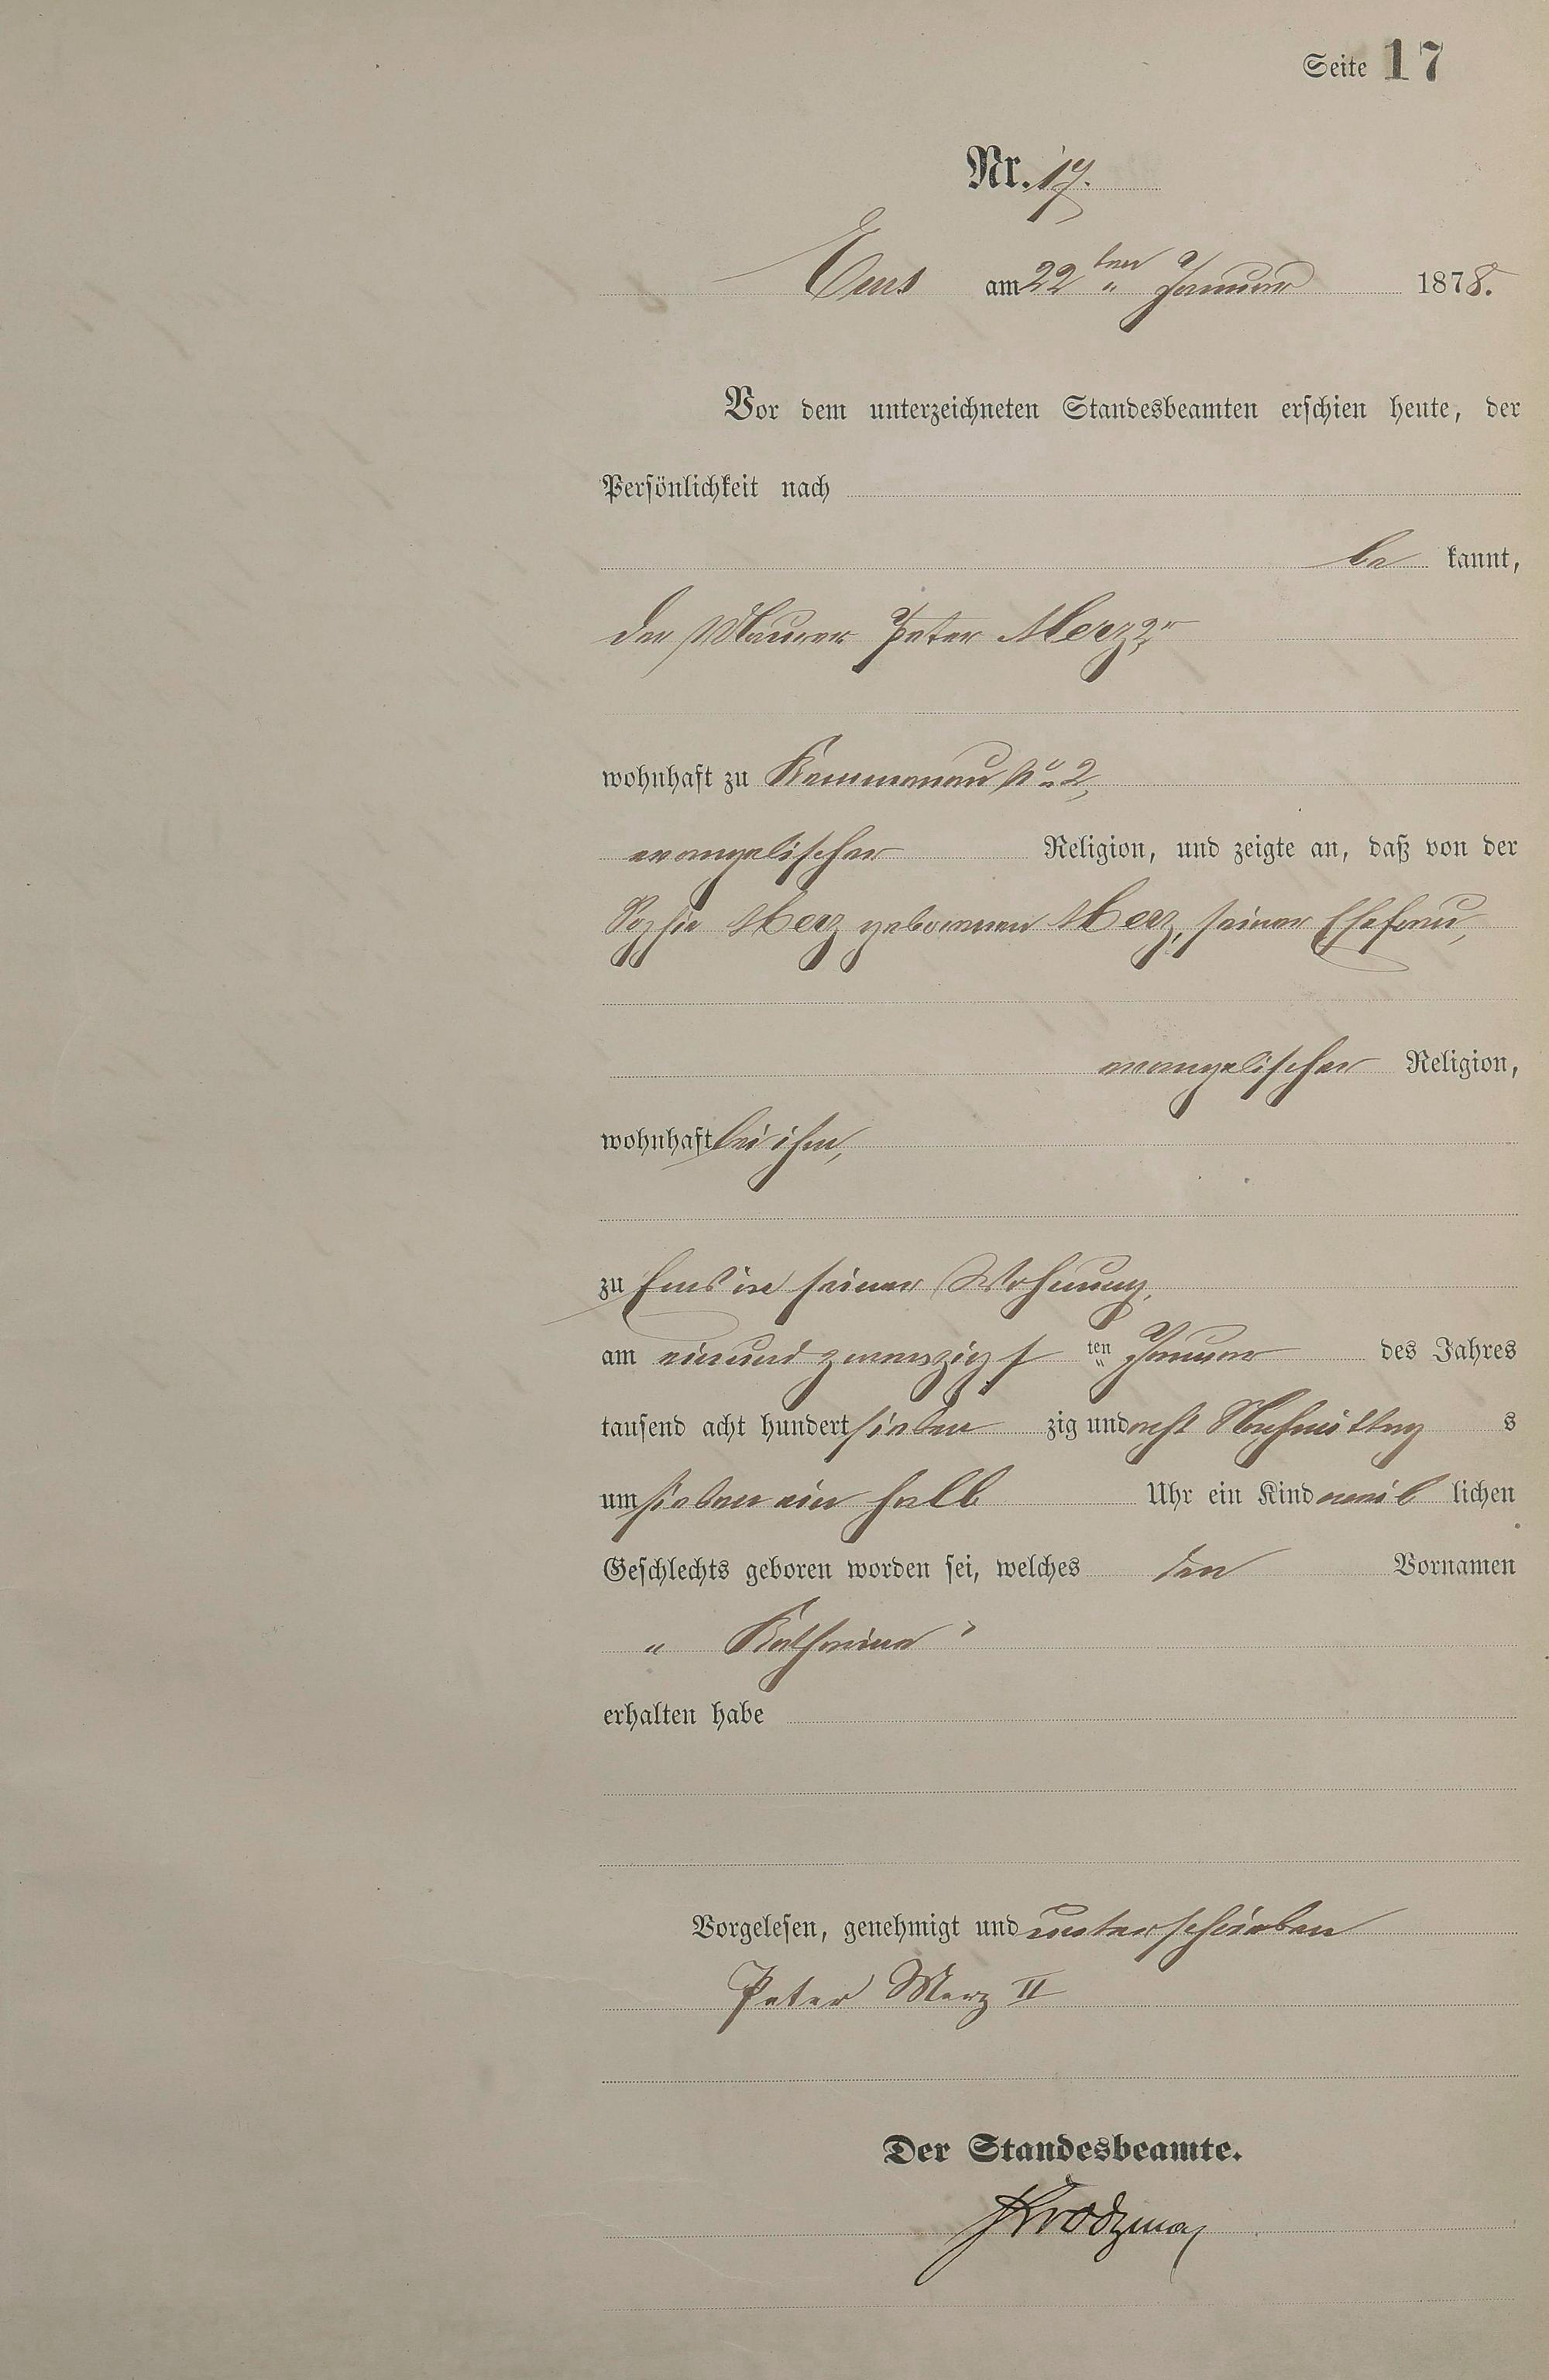 Seite 17
Nr. 17.
Ems am 22ten Januar 1878.
Vor dem unterzeichneten Standesbeamten erschien heute, der
Persönlichkeit nach
be kannt,
der Maurer Peter Merz 2r
wohnhaft zu Kemmenau No 2,
evangelischer Religion, und zeigte an, daß von der
Sophie Merz geborenen Merz, seiner Ehefrau,
evangelischer Religion,
wohnhaft bei ihm,
zu Ems in seiner Wohnung,
am einundzwanzigst ten Januar des Jahres
tausend acht hundert sieben zig und acht Nachmittag s
um sieben ein halb Uhr ein Kind weib lichen
Geschlechts geboren worden sei, welches den Vornamen
" Katharina "
erhalten habe
Vorgelesen, genehmigt und unterschrieben
Peter Merz II
Der Standesbeamte.